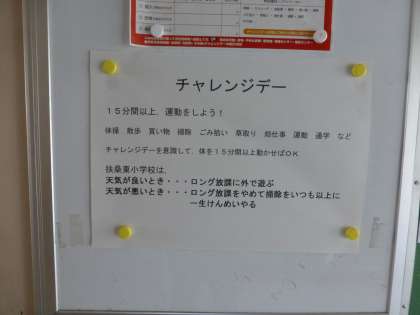 チャレンジデー
１５分間以上、運動をしよう！
体操 散歩 買い物 掃除 ごみ拾い 草取り 畑仕事 運動 通学 など
チャレンジデーを意識して、体を１５分間以上動かせばＯＫ
扶桑東小学校は、
天気が良いとき・・・ロング放課に外で遊ぶ
天気が悪いとき・・・ロング放課をやめて掃除をいつも以上に
一生けんめいやる